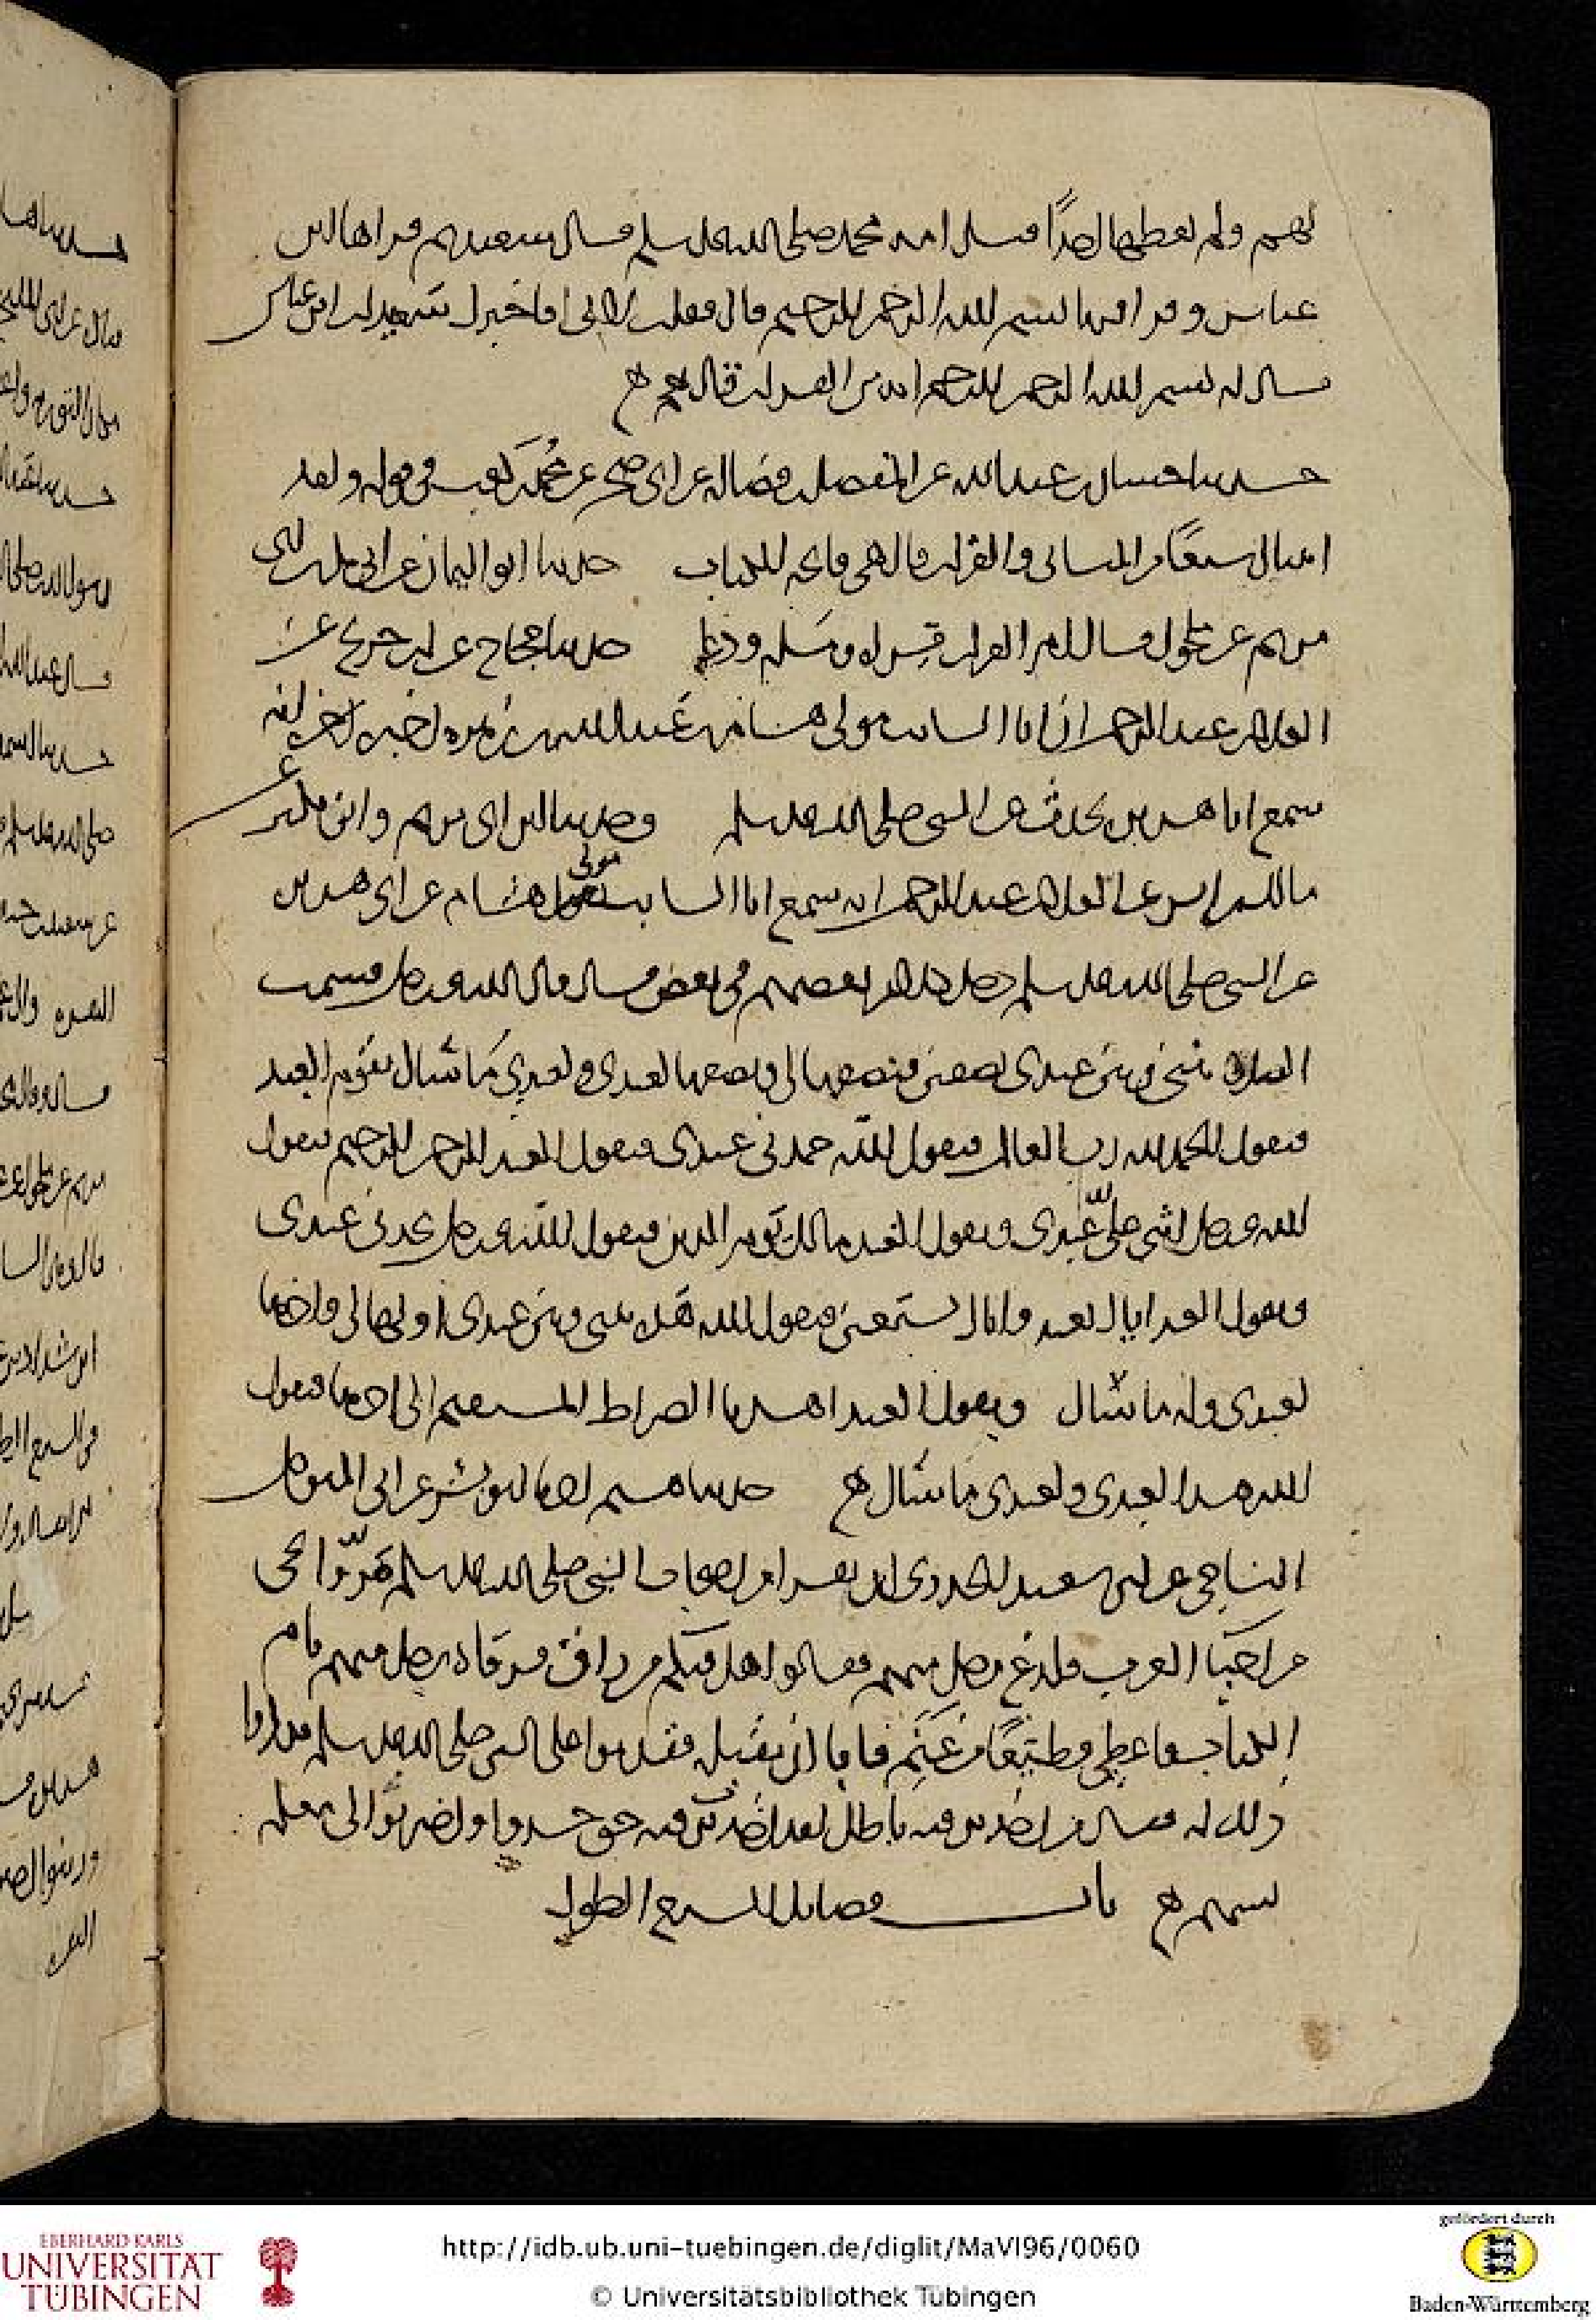 لهم ولم يعطها احدا قبل امة محمد صلى الله عليه وسلم قال سعيد ثم قراها ابن
عباس وقرا فيها بسم الله الرحمن الرحيم قال فقلت لابي افاخبرك سعيد ان ابن عباس
قال له بسم الله الرحمن الرحيم اية من القران قال نعم
حدثنا حسان بن عبد الله عن المفضل بن فضالة عن ابي صخر عن محمد بن كعب في قوله ولقد
اتيناك سبعا من المثاني والقران قال هي فاتحة الكتاب حدثنا ابو اليمان عن ابي بكر بن ابي
مريم عن مكحول قال ام القران قراة ومسلة ودعا حدثنا حجاج عن ابن جريج عن
العلا بن عبد الرحمن ان ابا السائب مولى هشام بن عبد الله بن زهرة اخبره انه
سمع ابا هريرة يحدث عن النبي صلى الله عليه وسلم وحدثنا ابن ابي مريم وابن بكير عن
مالك بن انس عن العلا بن عبد الرحمن انه سمع ابا السائب مولى هشام عن ابي هريرة
عن النبي صلى الله عليه وسلم دخل حديث بعضهم في بعض قال قال الله عز وجل قسمت
الصلاة بيني وبين عبدي نصفين فنصفها لي ونصفها لعبدي ولعبدي ما سال يقوم العبد
فيقول الحمد لله رب العالمين فيقول الله حمدني عبدي ويقول العبد الرحمن الرحيم فيقول
الله عز وجل اثنى علي عبدي ويقول العبد مالك يوم الدين فيقول الله عز وجل مجدني عبدي
ويقول العبد اياك نعبد واياك نستعين فيقول الله هذه بيني وبين عبدي اولها لي واخرها
لعبدي وله ما سال ويقول العبد اهدنا الصراط المستقيم الى اخرها فيقول
الله هذا لعبدي ولعبدي ما سال حدثنا هشيم اخبرنا ابو بشر عن ابي المتوكل
الناجي عن ابي سعيد الخدري ان نفرا من اصحاب النبي صلى الله عليه وسلم مروا بحي
من احيا العرب فلدغ رجل منهم فقالوا هل فيكم من راق فرقاه رجل منهم بام
الكتاب فاعطي قطيعا من غنم فابا ان يقبله فقدموا على النبي صلى الله عليه وسلم فذكروا
ذلك له فقال من اخذ برقية باطل لقد اخذت برقية حق خذوا واضربوا لي معكم
بسهم باب فضايل السبع الطول
http://idb.ub.uni-tuebingen.de/diglit/MaVI96/0060
© Universitätsbibliothek Tübingen
EBERHARD KARLS
UNIVERSITÄT
TÜBINGEN
gefördert durch
Baden-Württemberg